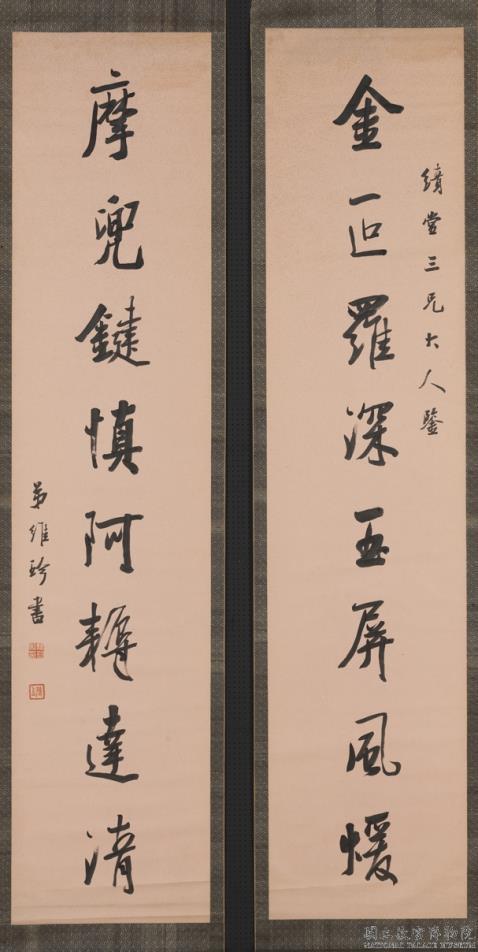 金叵羅深玉屏風煖
堂三兄大人鑒
摩兜鍵慎阿耨達清
弟維珍書
國立故宮博物院
NATIONAL PALACE MUSEUM